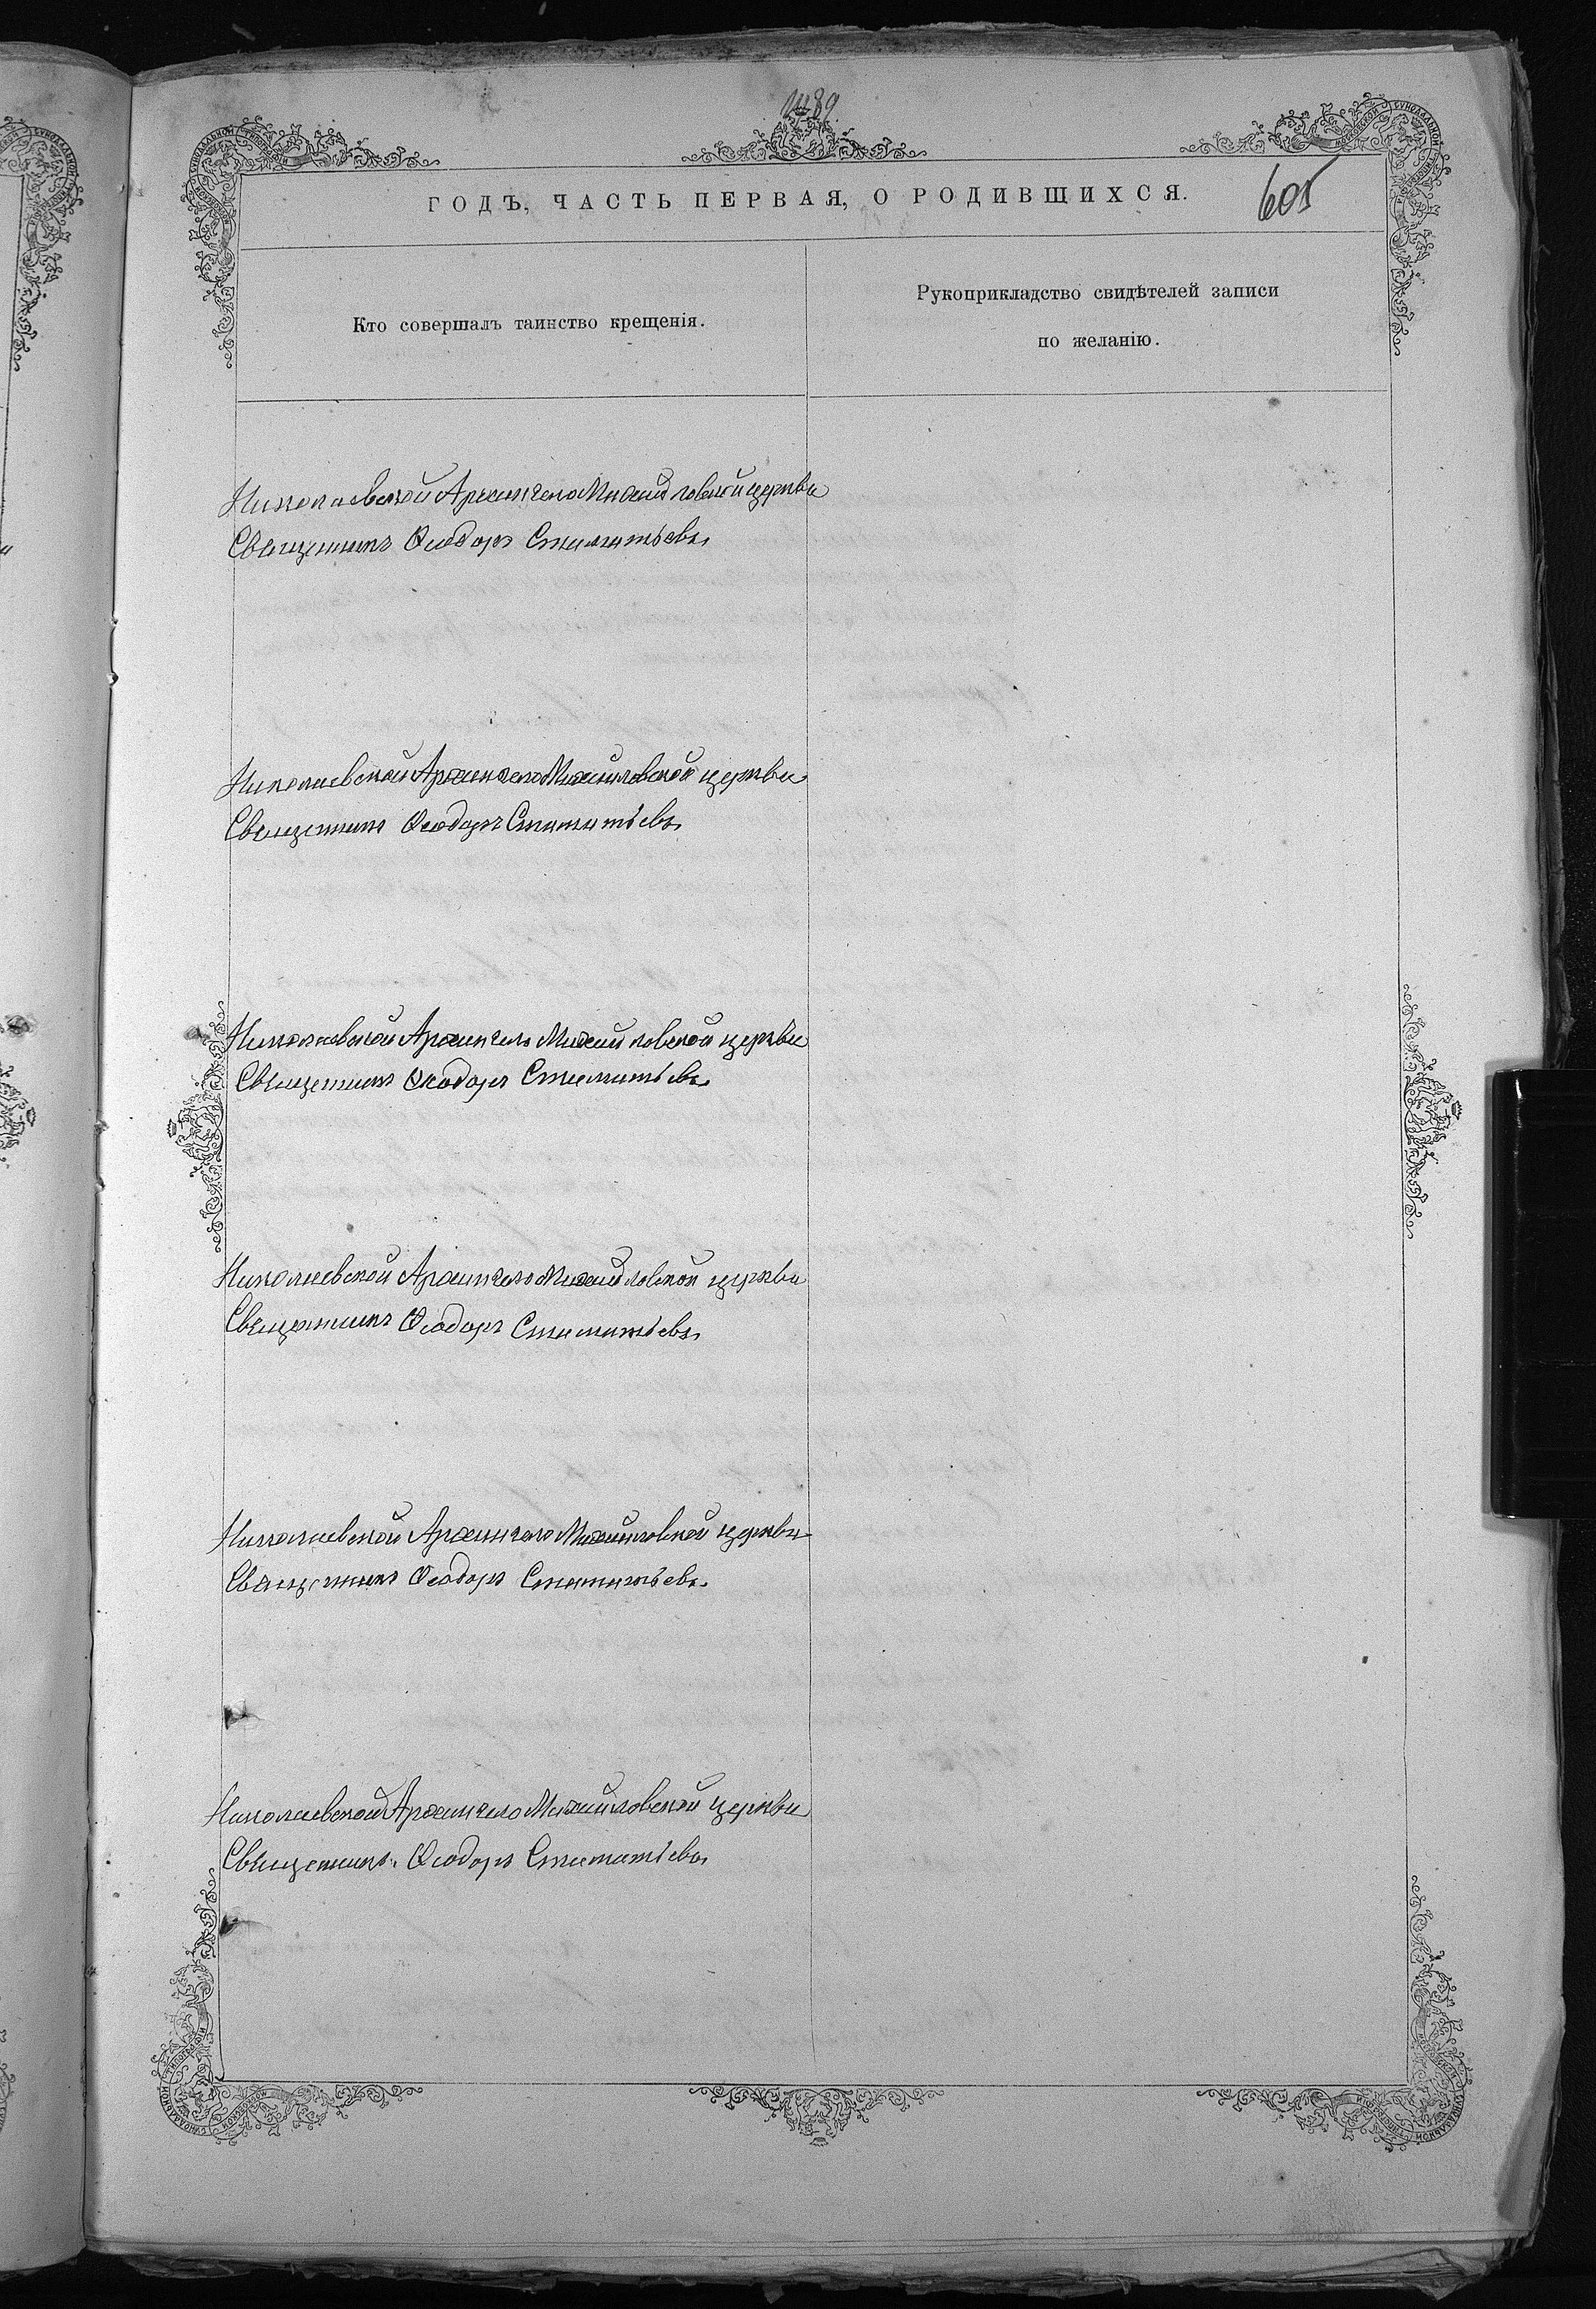 ГОДЪ, ЧАСТЬ ПЕРВАЯ, О РОДИВШИХСЯ.
605
Кто совершалъ таинство крещенія.
Рукоприкладство свидѣтелей записи
по желанію.
Николаевской Архангело Михайловской церкви
Священникъ Ѳеодоръ Стаматьевъ
Николаевской Архангело Михайловской церкви
Священникъ Ѳеодоръ Стаматьевъ
Николаевской Архангело Михайловской церкви
Священникъ Ѳеодоръ Стаматьевъ
Николаевской Архангело Михайловской церкви
Священникъ Ѳеодоръ Стаматьевъ
Николаевской Архангело Михайловской церкви
Священникъ Ѳеодоръ Стаматьевъ
Николаевской Архангело Михайловской церкви
Священникъ Ѳеодоръ Стаматьевъ